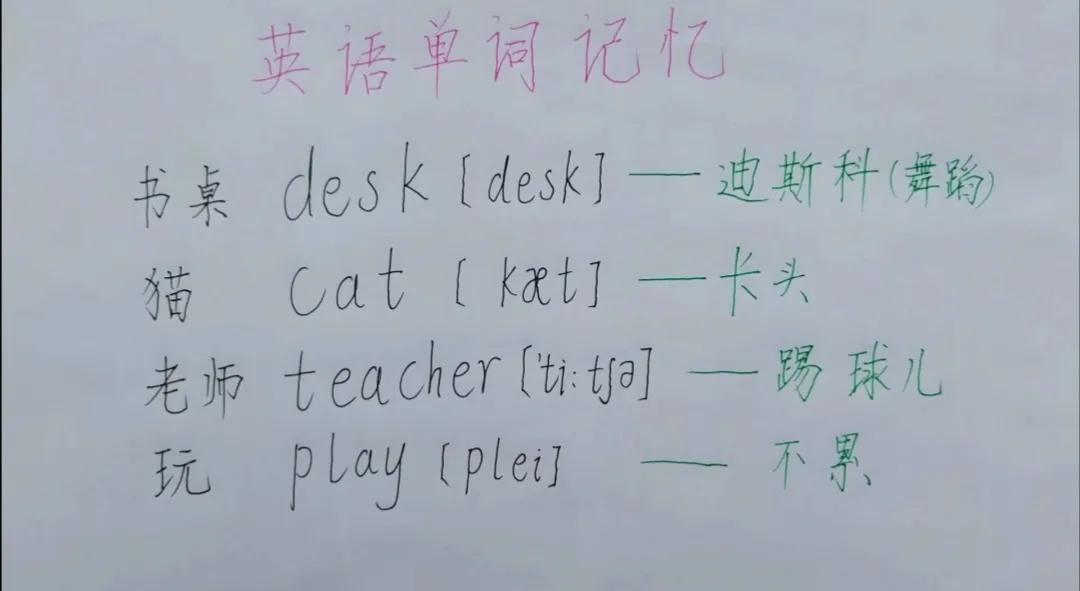 英语单词记忆
书桌 desk [desk] — 迪斯科(舞蹈)
猫 cat [kæt] — 卡头
老师 teacher ['ti:tʃə] — 踢球儿
玩 play [plei] — 不累